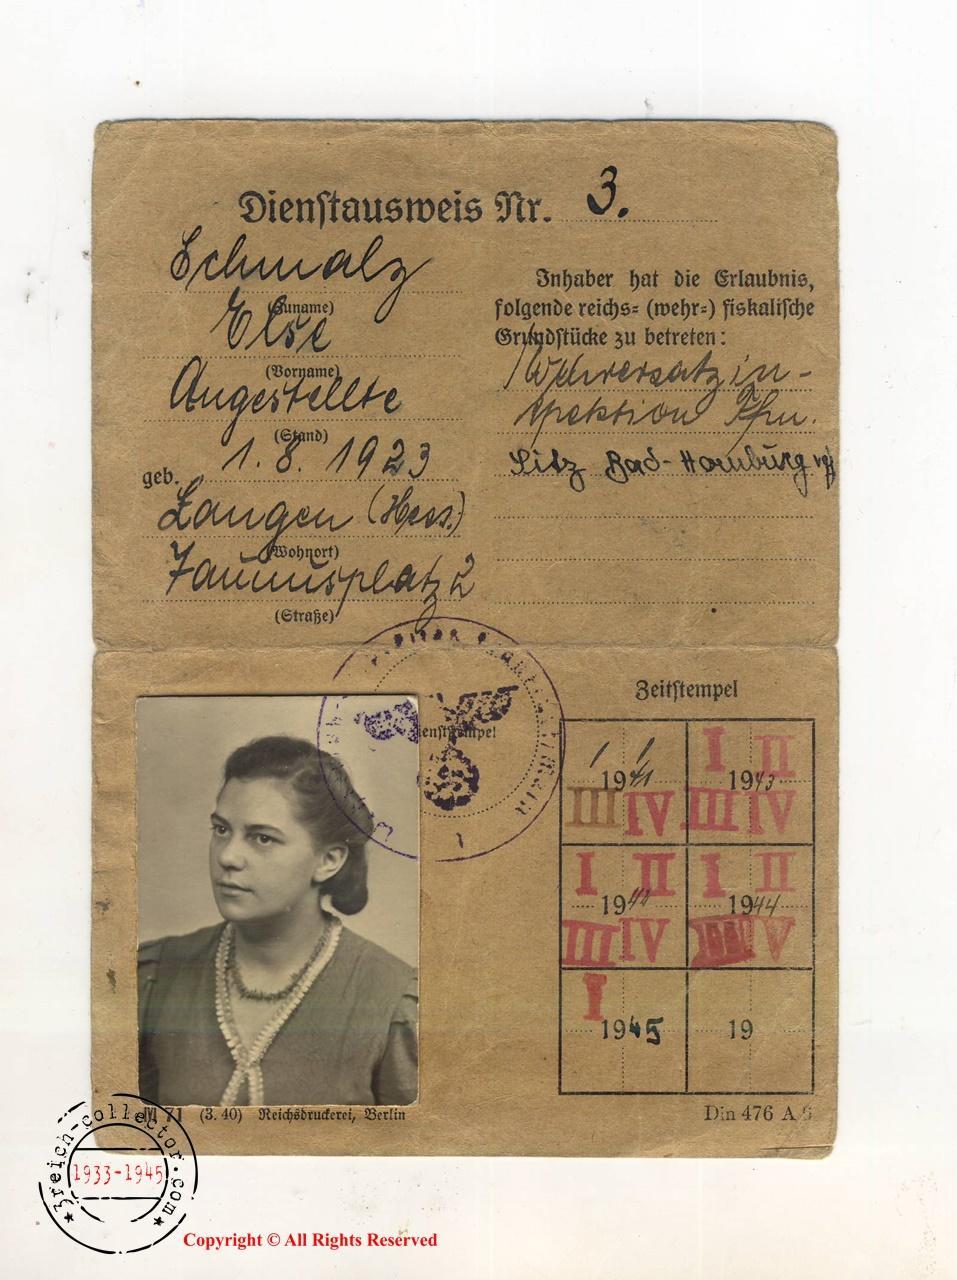 Dienstausweis Nr. 3.
Schmalz
(Zuname)
Else
(Vorname)
Angestellte
(Stand)
geb. 1. 8. 1923
Langen (Hess.)
(Wohnort)
Taunusplatz 2
(Straße)
Inhaber hat die Erlaubnis,
folgende reichs- (wehr-) fiskalische
Grundstücke zu betreten:
Wehrersatzin-
spektion Ffm.
Sitz Bad-Homburg
Dienststempel
Zeitstempel
1941 1943
III IV I II III IV
1942 1944
I II III IV I II III IV
1945 19
I
VI 71 (3. 40) Reichsdruckerei, Berlin
Din 476 A 6
3reich-collector.com
1933-1945
Copyright © All Rights Reserved